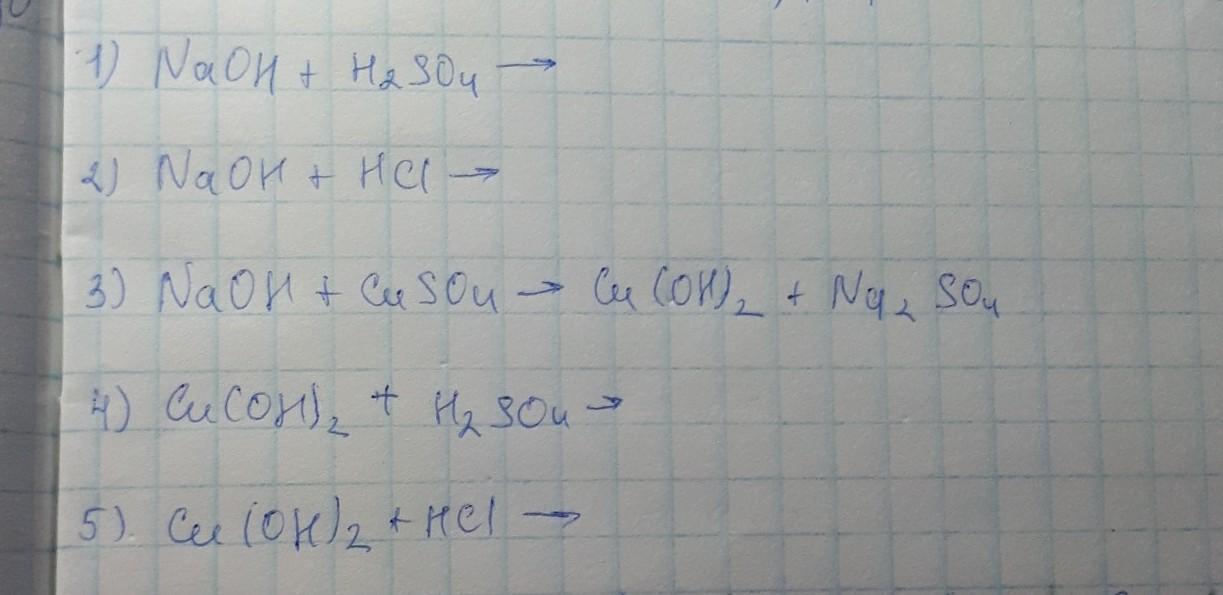 1) NaOH + H₂SO₄ →
2) NaOH + HCl →
3) NaOH + CuSO₄ → Cu(OH)₂ + Na₂SO₄
4) Cu(OH)₂ + H₂SO₄ →
5) Cu(OH)₂ + HCl →